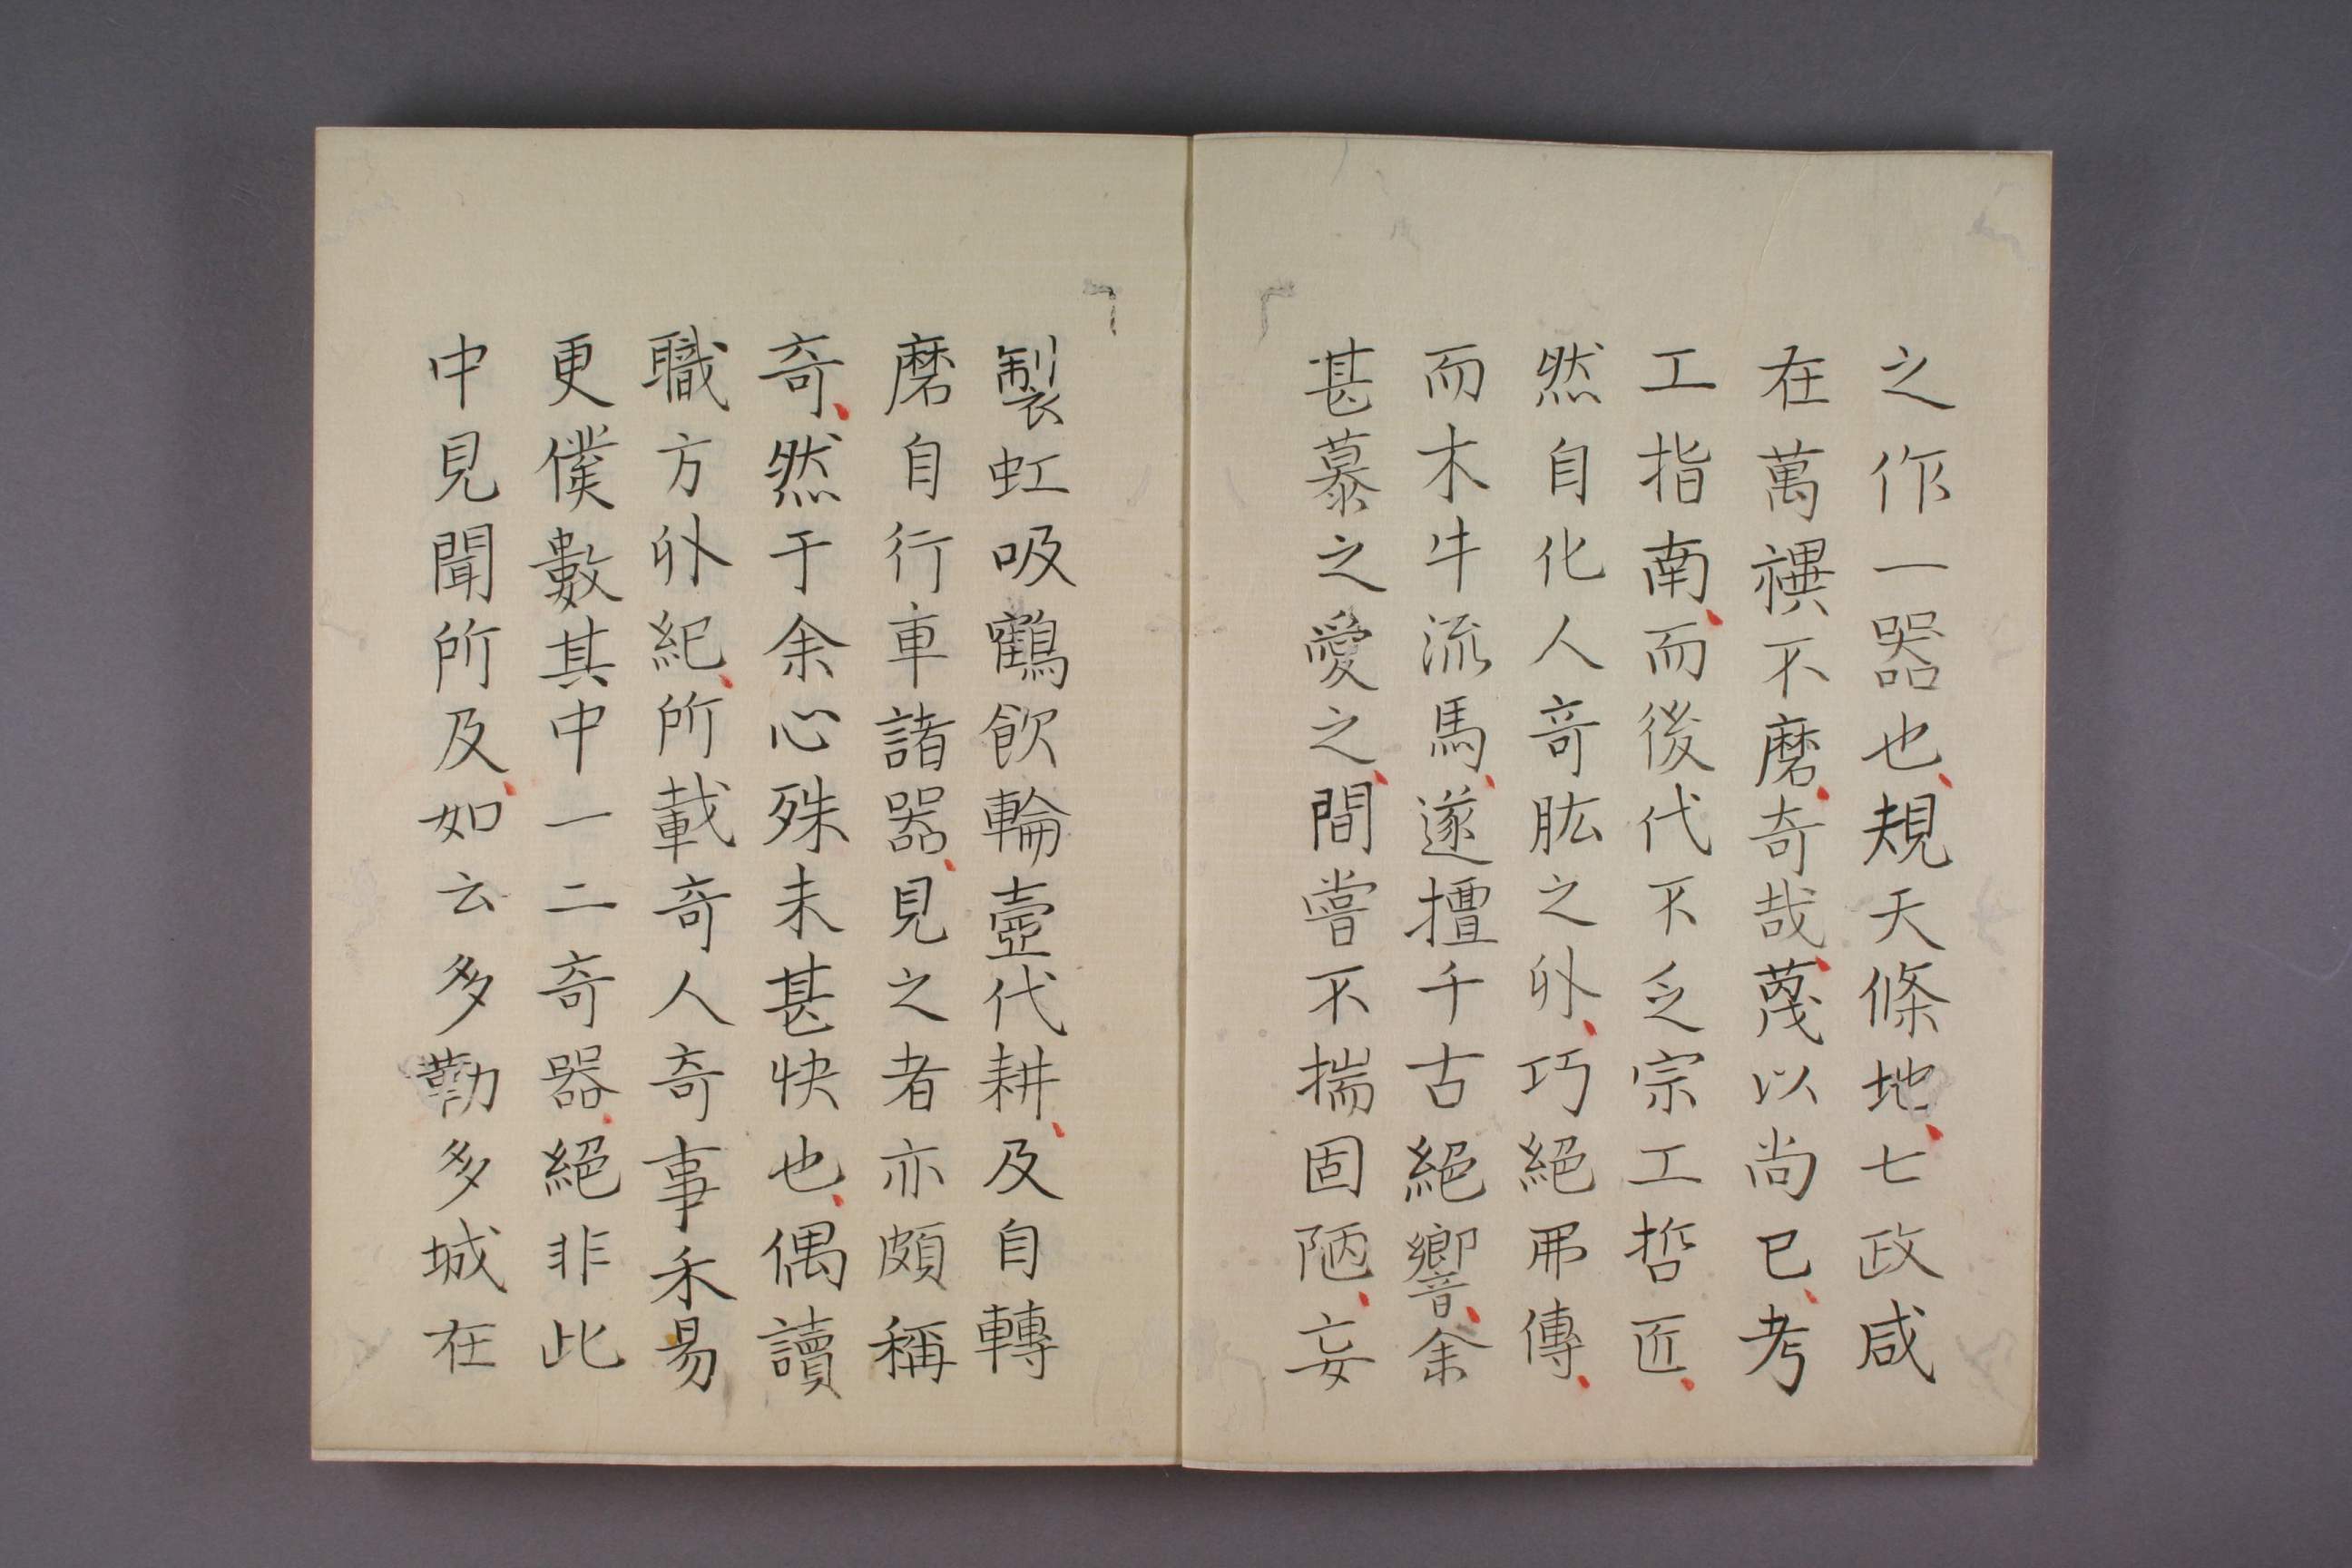 之作一器也、規天條地、七政咸
在萬禩不磨、奇哉、蔑以尚已、考
工指南、而後代不乏宗工哲匠、
然自化人奇肱之外、巧絕弗傳、
而木牛流馬、遂擅千古絕響、余
甚慕之愛之、間嘗不揣固陋、妄
製虹吸鶴飲輪壺代耕、及自轉
磨自行車諸器、見之者亦頗稱
奇、然于余心殊未甚快也、偶讀
職方外紀、所載奇人奇事未易
更僕數其中一二奇器、絕非此
中見聞所及、如云多勒多城在